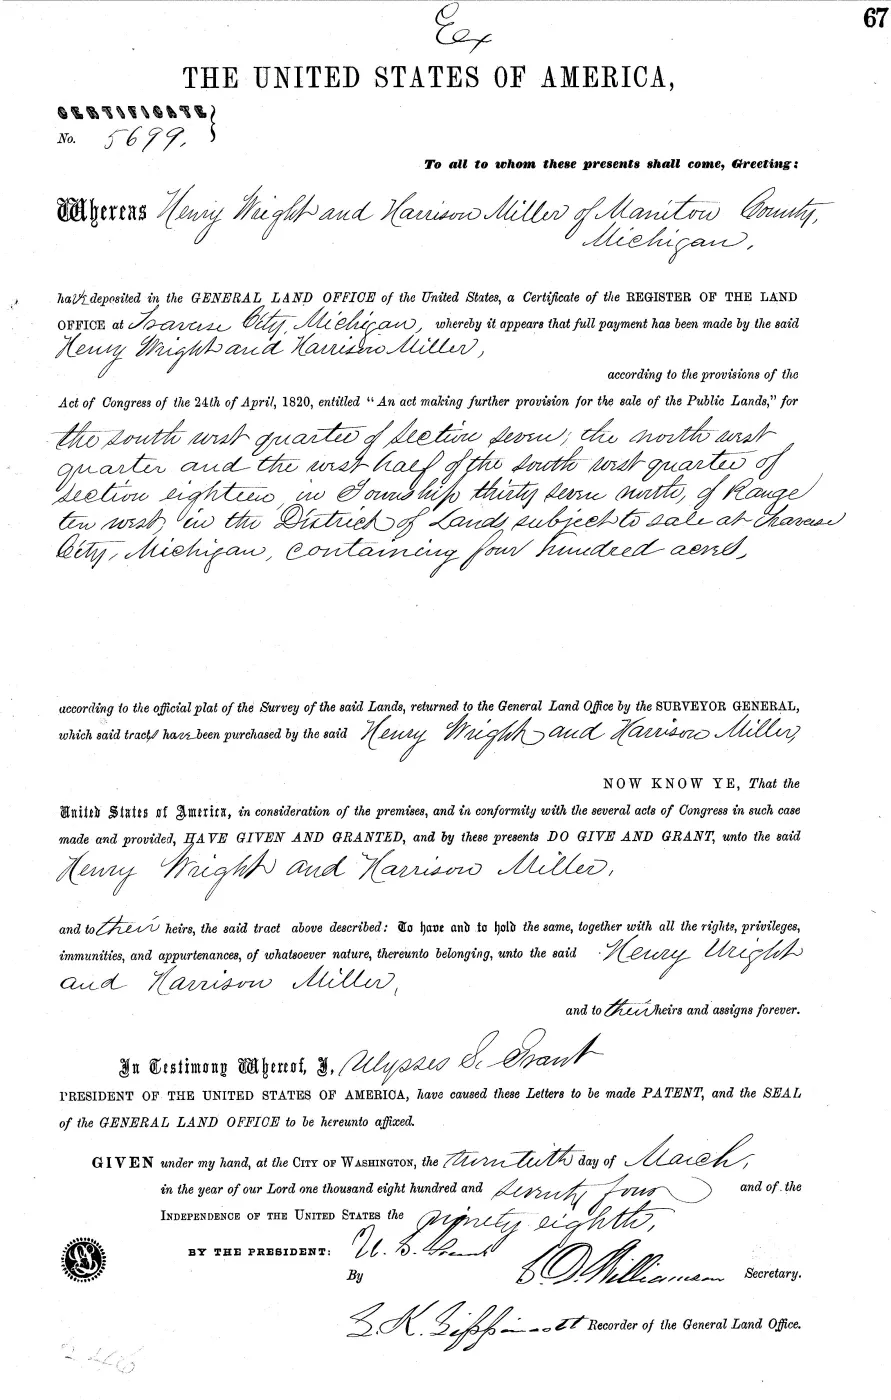 67
Ex
THE UNITED STATES OF AMERICA,
CERTIFICATE
No. 5699.
To all to whom these presents shall come, Greeting:
Whereas Henry Wright and Harrison Miller of Manitou County,
Michigan,
have deposited in the GENERAL LAND OFFICE of the United States, a Certificate of the REGISTER OF THE LAND
OFFICE at Traverse City, Michigan, whereby it appears that full payment has been made by the said
Henry Wright and Harrison Miller,
according to the provisions of the
Act of Congress of the 24th of April, 1820, entitled "An act making further provision for the sale of the Public Lands," for
the south west quarter of section seven, the north west
quarter and the west half of the south west quarter of
section eighteen, in Township thirty seven north, of Range
ten west, in the District of Lands subject to sale at Traverse
City, Michigan, containing four hundred acres,
according to the official plat of the Survey of the said Lands, returned to the General Land Office by the SURVEYOR GENERAL,
which said tracts have been purchased by the said Henry Wright and Harrison Miller,
NOW KNOW YE, That the
United States of America, in consideration of the premises, and in conformity with the several acts of Congress in such case
made and provided, HAVE GIVEN AND GRANTED, and by these presents DO GIVE AND GRANT, unto the said
Henry Wright and Harrison Miller,
and to their heirs, the said tract above described: To have and to hold the same, together with all the rights, privileges,
immunities, and appurtenances, of whatsoever nature, thereunto belonging, unto the said Henry Wright
and Harrison Miller,
and to their heirs and assigns forever.
In Testimony Whereof, I, Ulysses S. Grant
PRESIDENT OF THE UNITED STATES OF AMERICA, have caused these Letters to be made PATENT, and the SEAL
of the GENERAL LAND OFFICE to be hereunto affixed.
GIVEN under my hand, at the CITY OF WASHINGTON, the twentieth day of March,
in the year of our Lord one thousand eight hundred and seventy four and of the
INDEPENDENCE OF THE UNITED STATES the ninety eighth,
BY THE PRESIDENT: U. S. Grant
By S. D. Williamson Secretary.
L. K. Lippincott Recorder of the General Land Office.